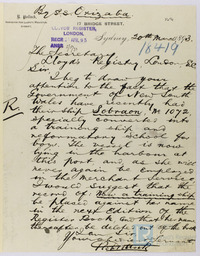 By S.S. Orizaba
17 BRIDGE STREET,
LLOYD'S REGISTER,
LONDON.
Sydney, 20th March 1893.
18419
The Secretary
Lloyd's Register London E.C.
Sir
I beg to draw your
attention to the fact that the
Government of New South
Wales have recently had
the ship Sobraon, No 1072
specially converted into
a training ship and
reformatory school for
boys. The vessel is now
lying in the harbour at
this port, and, as she will
never again be employed
in the Merchant Service
I would suggest that the
word a training ship
be placed against her name
in the next Edition of the
Register Book and that she
thereafter be deleted from the book
I am Sir
Your obedient Servant